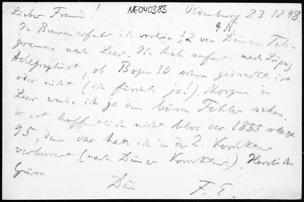 Lieber Freund!
NE040383
Oldenburg 23.12.98
4 N.
In Bremen erhielt ich vorhin 32 von Deinen Tele-
gramme nach Leer. Ich habe sofort nach Leipzig
telegraphiert, ob Bogen 30 schon gedruckt ist
oder nicht (ich fürchte ja!) Morgen in
Leer werde ich ja den bösen Fehler sehen.
Es ist hoffentlich nicht blos der 1885 statt
95, denn das hatte ich in der 2. Korrektur
verbessert (nach Deiner Korrektur). Herzliche
Grüsse
Dein
F. T.